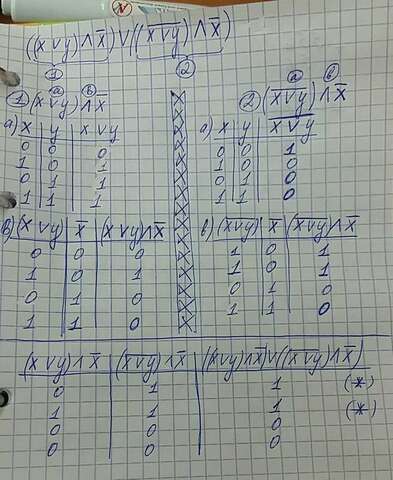 ((x∨y)∧x̄)∨((x̅∨̅y̅)∧x̄)
① ②
① (x∨y)∧x̄
ⓐ ⓑ
а) x y x∨y
0 0 0
1 0 1
0 1 1
1 1 1
в) (x∨y) x̄ (x∨y)∧x̄
0 0 0
1 0 1
0 1 0
1 1 0
② (x̅∨̅y̅)∧x̄
ⓐ ⓑ
а) x y x̅∨̅y̅
0 0 1
1 0 0
0 1 0
1 1 0
в) (x̅∨̅y̅) x̄ (x̅∨̅y̅)∧x̄
1 0 1
1 0 1
0 1 0
1 1 0
(x∨y)∧x̄ (x̅∨̅y̅)∧x̄ ((x∨y)∧x̄)∨((x̅∨̅y̅)∧x̄)
0 1 1 (*)
1 1 1 (*)
0 0 0
0 0 0